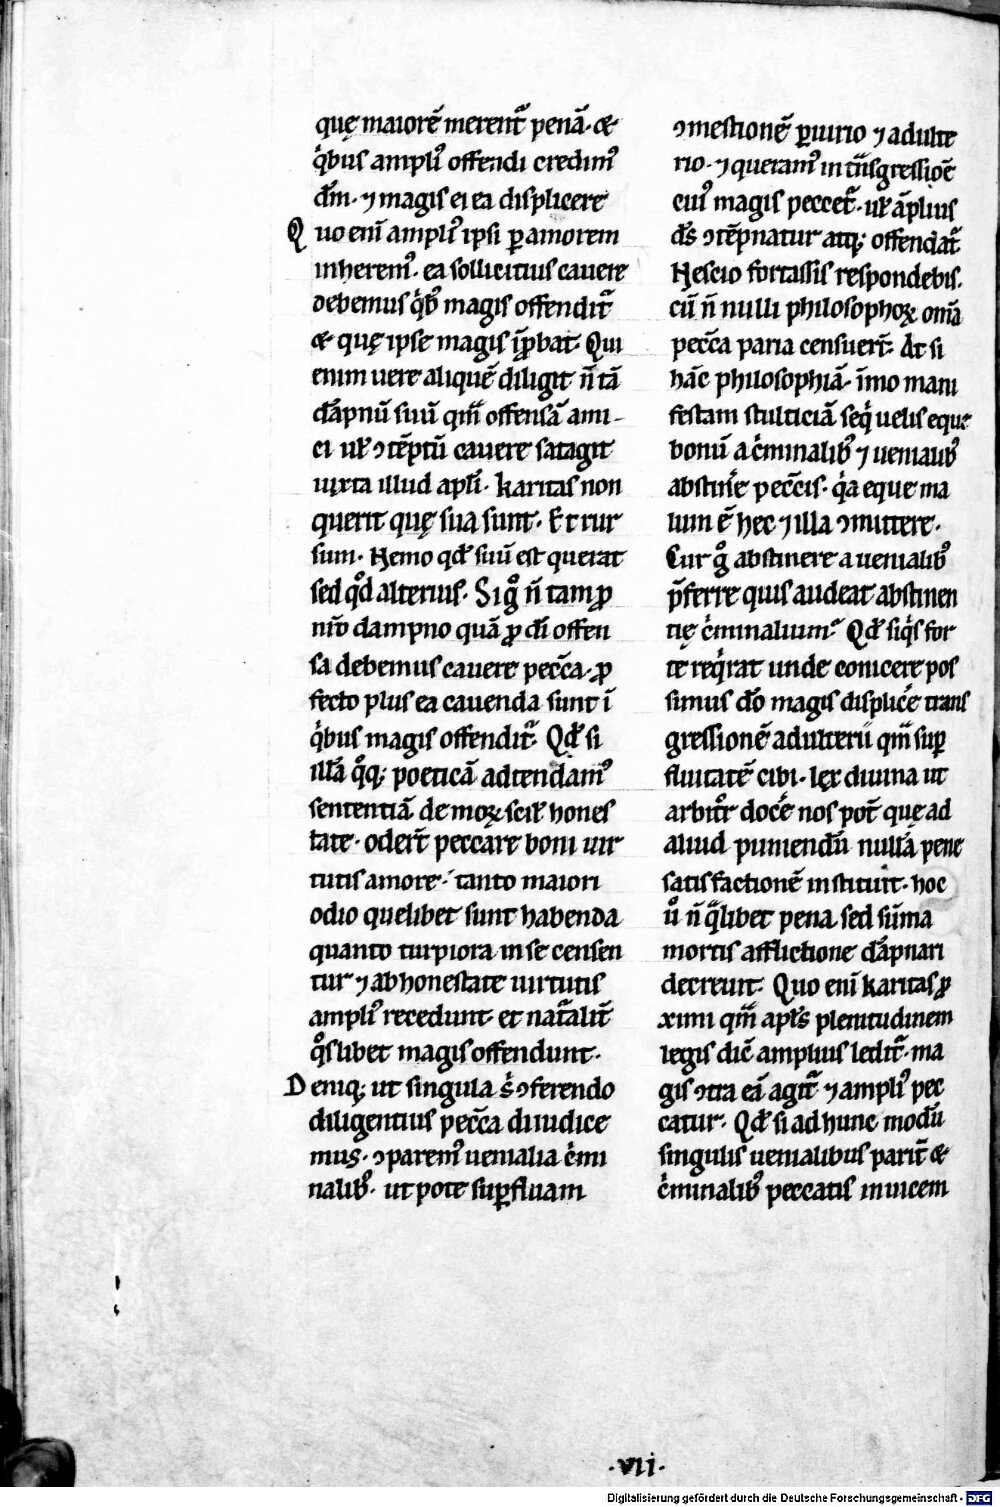 quę maiorē merent᷑ penā. &
qͥbus ampliꝰ offendi credimꝰ
dm̄. ⁊ magis ei ea displicere
Quo eni᷑ ampliꝰ ipsi ꝑ amorem
inheremꝰ. ea sollicitius cauere
debemus qͥbꝰ magis offendit᷑
& quę ipse magis ip̄robat. Qui
enim uere aliquē diligit n̄ tā
dāpnū suū qm̄ offensā ami-
ci uƚ ꝯtēptū cauere satagit
iuxta illud apƚi. karitas non
querit quę sua sunt. Et rur
sum. Nemo qđ suū est querat
sed qđ alterius. Si gͦ n̄ tam ꝓ
nr̄o dampno quā ꝓ dī offen
sa debemus cauere pecc̄a. ꝓ
fecto plus ea cauenda sunt ī
qͥbus magis offendit᷑. Qđ si
illā qͦq; poeticā adtendamꝰ
sententiā de moꝝ sciƚ hones
tate. oder̄t peccare boni uir
tutis amore. tanto maiori
odio quelibet sunt habenda
quanto turpiora in se censen
tur ⁊ ab honestate uirtutis
ampliꝰ recedunt et nat᷑alit̄
qͦslibet magis offendunt.
Deniq; ut singula s̄ ꝯferendo
diligentius pecc̄a diiudice
mus. ꝯparemꝰ uenialia cͥmi
nalibꝰ. ut pote suꝑfluam
ꝯmestionē ꝑiurio ⁊ adulte
rio. ⁊ queramꝰ in tͣnsgressiōe
cuiꝰ magis peccet᷑. uƚ āplius
dꝰs ꝯtēpnatur atq; offendat᷑.
Nescio fortassis respondebis.
cū n̄ nulli philosophoꝝ om̄a
pecc̄a paria censuer̄t. At si
hāc philosophiā. īmo mani
festam stulticiā seqͥ uelis eque
bonū a cͥminalibꝰ ⁊ uenialibꝰ
abstinͤre pecc̄is. qͥa eque ma
lum ē hec ⁊ illa ꝯmittere.
Cur gͦ abstinere a uenialibꝰ
p̄ferre quis audeat abstinen
tię cͥminalium. Qđ siqͥs for
te reqͥrat unde conicere pos
simus do᷑ magis displicͤe trans
gressionē adulterii qm̄ suꝑ
fluitatē cibi. lex diuina ut
arbitͦr docͤe nos pot̄ quę ad
aliud puniendū nullā pene
satisfactionē instituit. hoc
uͦ n̄ qͣlibet pena sed sūma
mortis afflictione dāpnari
decreuit. Quo eni᷑ karitas ꝓ
ximi qm̄ apƚs plenitudinem
legis dic̄ amplius ledit᷑. ma
gis ꝯtra eā agit᷑ ⁊ ampliꝰ pec
catur. Qđ si ad hunc modū
singulis uenialibus parit̄ &
cͥminalibꝰ peccatis inuicem
.vii.
Digitalisierung gefördert durch die Deutsche Forschungsgemeinschaft - DFG